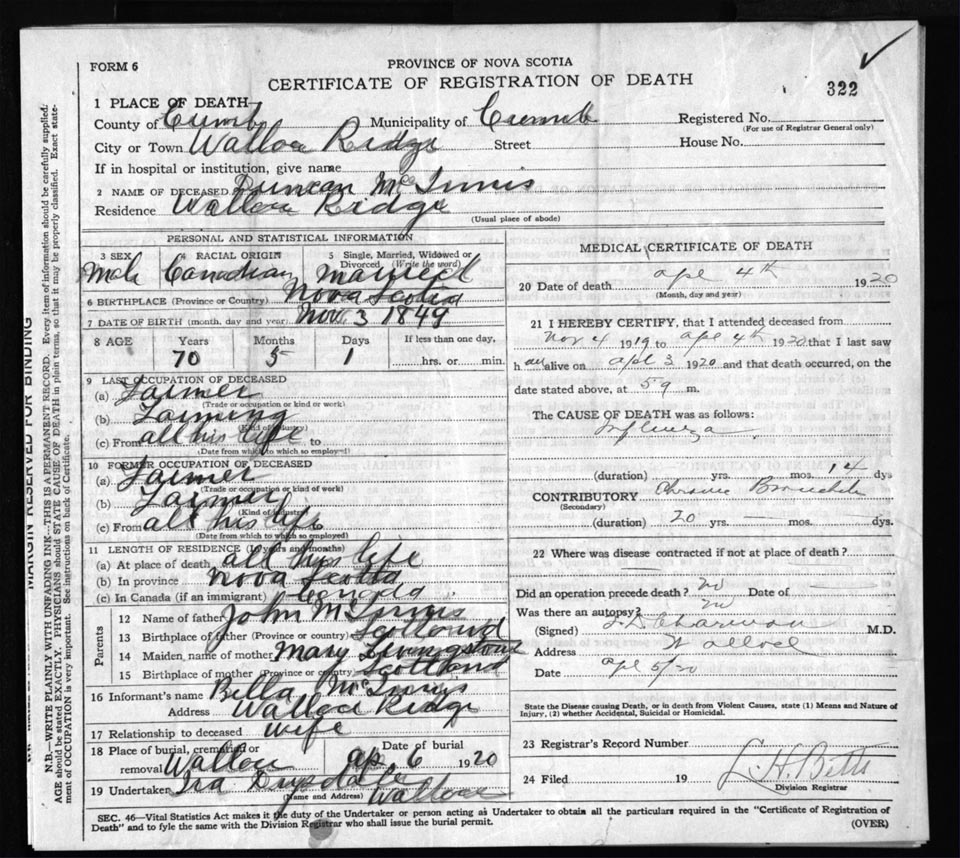 FORM 6
PROVINCE OF NOVA SCOTIA
CERTIFICATE OF REGISTRATION OF DEATH
322
1 PLACE OF DEATH—
County of Cumb Municipality of Cumb Registered No.
(For use of Registrar General only)
City or Town Wallace Ridge Street House No.
If in hospital or institution, give name
2 NAME OF DECEASED Duncan McInnis
Residence Wallace Ridge
(Usual place of abode)
PERSONAL AND STATISTICAL INFORMATION
3 SEX 4 RACIAL ORIGIN 5 Single, Married, Widowed or Divorced (Write the word)
Male Canadian Married
6 BIRTHPLACE (Province or Country) Nova Scotia
7 DATE OF BIRTH (month, day and year) Nov. 3 1849
8 AGE Years Months Days If less than one day,
70 5 1 hrs. or min.
9 LAST OCCUPATION OF DECEASED
(a) Farmer
(Trade or occupation or kind of work)
(b) Farming
(Kind of industry)
(c) From all his life to
(Date from which to which so employed)
10 FORMER OCCUPATION OF DECEASED
(a) Farmer
(Trade or occupation or kind of work)
(b) Farmer
(Kind of industry)
(c) From all his life
(Date from which to which so employed)
11 LENGTH OF RESIDENCE (In years and months)
(a) At place of death all his life
(b) In province Nova Scotia
(c) In Canada (if an immigrant) Canada
Parents
12 Name of father John McInnis
13 Birthplace of father (Province or country) Scotland
14 Maiden name of mother Mary Livingstone
15 Birthplace of mother (Province or country) Scotland
16 Informant's name Bella McInnis
Address Wallace Ridge
17 Relationship to deceased wife
18 Place of burial, cremation or removal Wallace Date of burial Ap 6 1920
19 Undertaker Ira Drysdale Wallace
(Name and Address)
MEDICAL CERTIFICATE OF DEATH
20 Date of death Apl 4th 1920
(Month, day and year)
21 I HEREBY CERTIFY, that I attended deceased from
Nov 4 1919 to Apl 4th 1920, that I last saw
h alive on Apl 3 1920 and that death occurred, on the
date stated above, at m.
The CAUSE OF DEATH was as follows:
Influenza
(duration) yrs. mos. 14 dys
CONTRIBUTORY Chronic Bronchitis
(Secondary)
(duration) 20 yrs. — mos. — dys.
22 Where was disease contracted if not at place of death?
Did an operation precede death? no Date of
Was there an autopsy? no
(Signed) M.D.
Address Wallace
Date Apl 5/20
State the Disease causing Death, or in death from Violent Causes, state (1) Means and Nature of
Injury, (2) whether Accidental, Suicidal or Homicidal.
23 Registrar's Record Number
24 Filed 19 L. H. Betts
Division Registrar
SEC. 46—Vital Statistics Act makes it the duty of the Undertaker or person acting as Undertaker to obtain all the particulars required in the "Certificate of Registration of
Death" and to fyle the same with the Division Registrar who shall issue the burial permit.
(OVER)
MARGIN RESERVED FOR BINDING
N.B.—WRITE PLAINLY WITH UNFADING INK—THIS IS A PERMANENT RECORD. Every item of information should be carefully supplied.
AGE should be stated EXACTLY. PHYSICIANS should STATE CAUSE OF DEATH in plain terms, so that it may be properly classified. Exact state-
ment of OCCUPATION is very important. See instructions on back of Certificate.